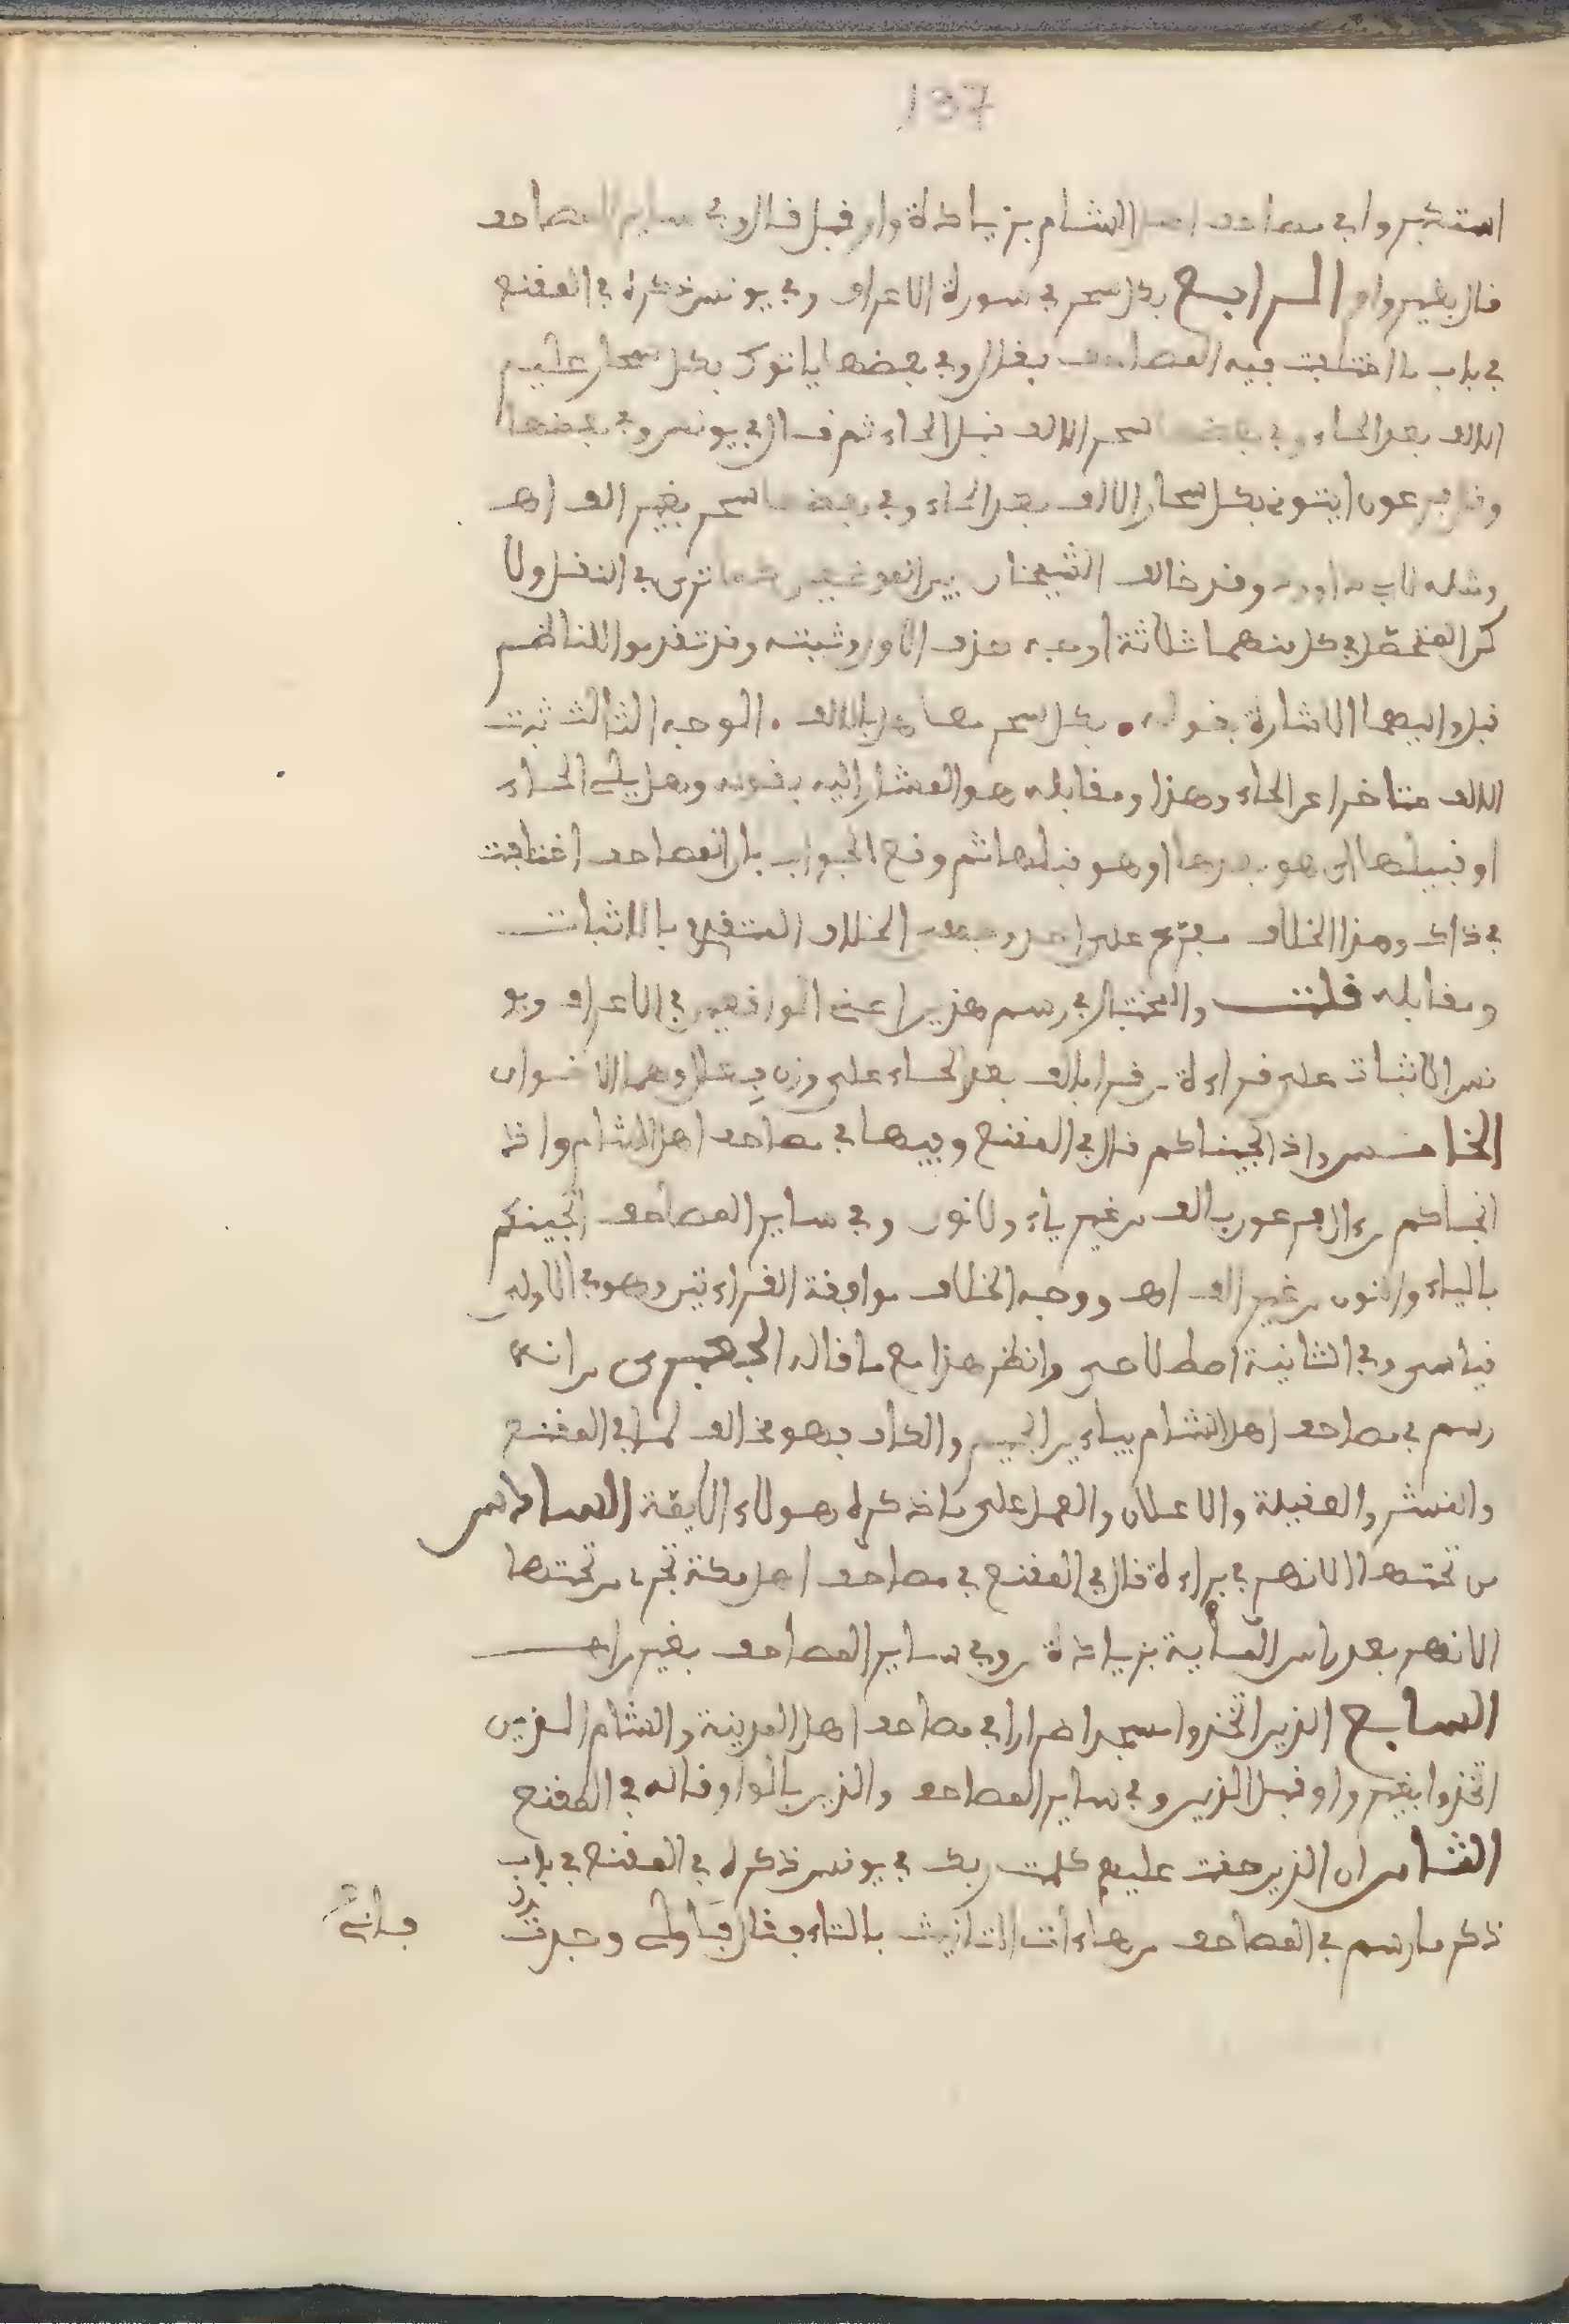 137
استكبروا في مصاحف اهل الشام بزيادة واو قبل قال وفي ساير المصاحف
قال بغير واو الرابع بكل سحر في سورة الاعراف وفي يونس ذكره في المقنع
في باب ما اختلفت فيه المصاحف بقال وفي بعضها ياتوك بكل سحار عليم
الالف بعد الحاء وفي بعضها ساحر الالف قبل الحاء ثم قال في يونس وفي بعضها
وقال فرعون ايتوني بكل سحار الالف بعد الحاء وفي بعضها سحر بغير الف اهـ
ومثله لابي داود وقد خالف الشيخان بين كما ترى في النقل ولا
كن المتحصل في كل منهما ثلاثة اوجه حذف الالف وثبته وقد تقدموا للناظم
قبل واليهما الاشارة بقوله . بكل سحر معا هل بالالف . الوجه الثالث ثبت
الالف متاخرا عن الحاء وهذا ومقابله هو المشار اليه بقوله وهل يلي الحاء
او قبيلها اي هو بعدها او هو قبلها ثم وقع الجواب بان المصاحف اختلفت
في ذلك وهذا الخلاف مفرع على احد وجهي الخلاف المتقدم بالاثبات
ومقابله قلت والمختار في رسم هذين اعني الواقعين في الاعراف ويو
نس الاثبات على قراءة من قرا بالف بعد الحاء على وزن فعال وهما الاخوان
الخامس واذ انجيناكم قال في المقنع وفيها في مصاحف اهل الشام واذ
انجاكم من ال فرعون بالف من غير ياء ولا نون وفي ساير المصاحف انجينكم
بالياء والنون من غير الف اهـ ووجه الخلاف موافقة القراءتين وهو في الاولى
قياسي وفي الثانية اصطلاحي وانظر هذا مع ما قاله الجعبري من انه
رسم في مصاحف اهل الشام بياء بين الجيم والكاف فهو مخالف لما في المقنع
والنشر والعقيلة والاعلان والعمل على ما ذكره هولاء الايمة السادس
من تحتها الانهر في براءة قال في المقنع في مصاحف اهل مكة تجري من تحتها
الانهر بعد راس الماية بزيادة من وفي ساير المصاحف بغير من اهـ
السابع الذين اتخذوا مسجدا ضرارا في مصاحف اهل المدينة والشام الذين
اتخذوا بغير واو قبل الذين وفي ساير المصاحف والذين بالواو قاله في المقنع
الثامن ان الذين حقت عليهم كلمت ربك في يونس ذكره في المقنع في باب
ذكر ما رسم في المصاحف من هاءات التانيث بالتاء فقال فاولى وجدت